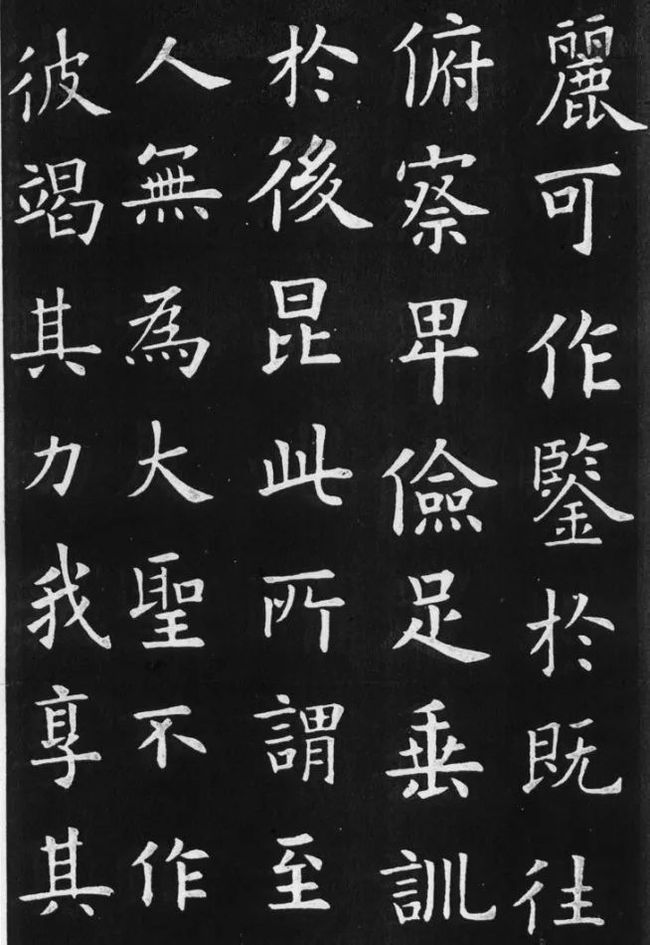 麗可作鑒於既往
俯察卑儉足垂訓
於後昆此所謂至
人無為大聖不作
彼竭其力我享其